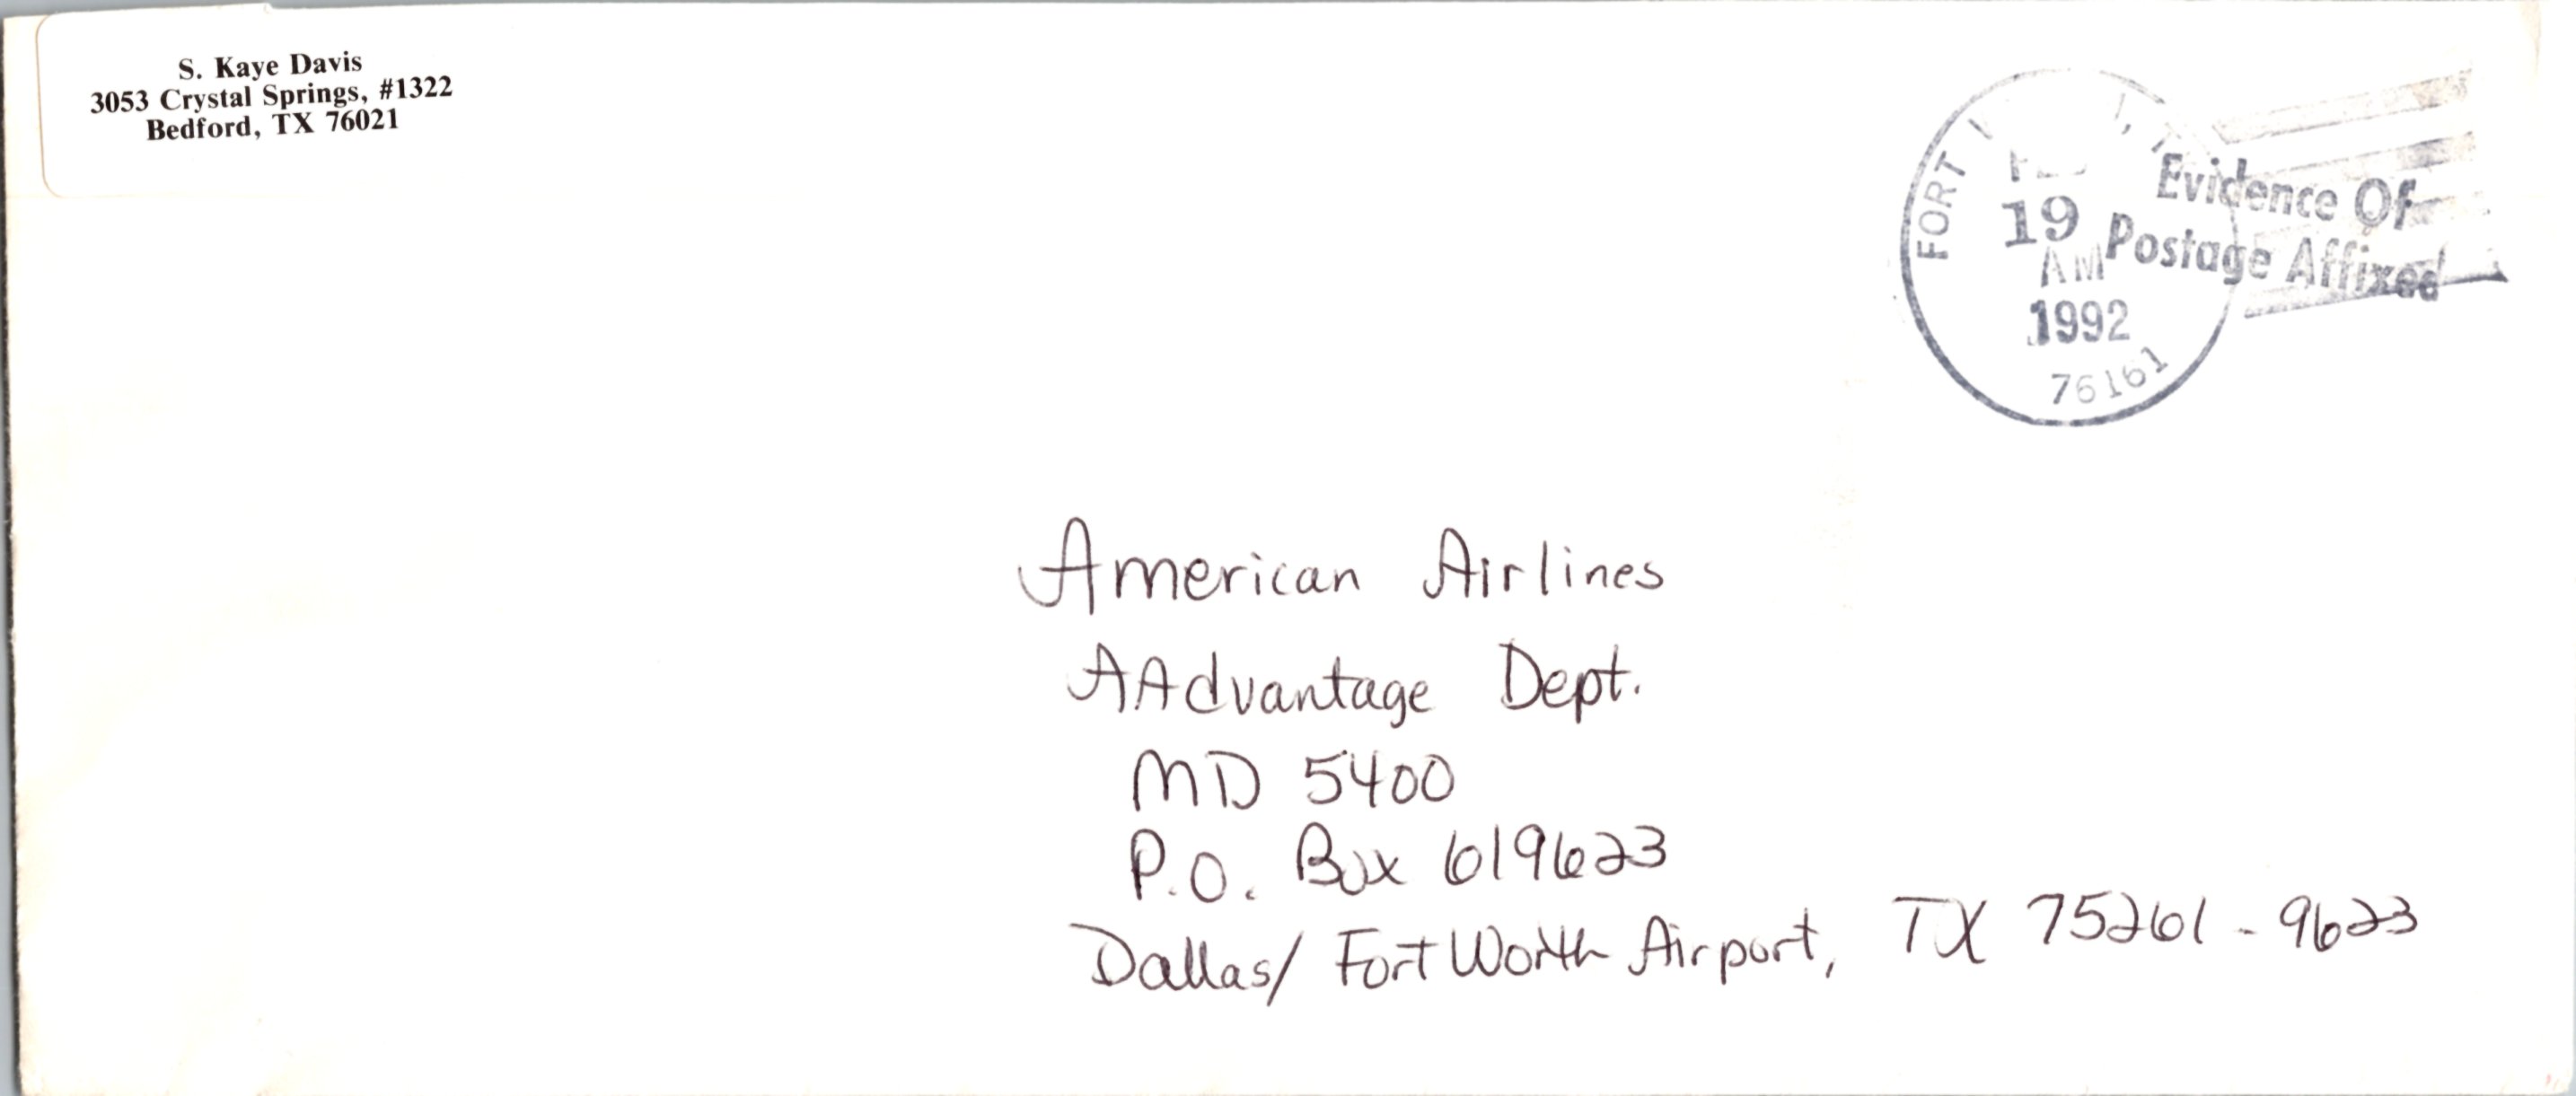 S. Kaye Davis
3053 Crystal Springs, #1322
Bedford, TX 76021
FORT
19
AM
1992
76161
Evidence Of
Postage Affixed
American Airlines
AAdvantage Dept.
MD 5400
P.O. Box 619623
Dallas/ Fort Worth Airport, TX 75261-9623